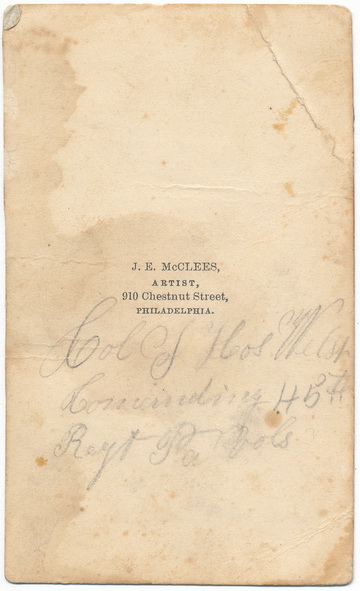 J. E. McCLEES,
ARTIST,
910 Chestnut Street,
PHILADELPHIA.
Col Thos Welsh
Comeinding 45th
Regt Pa Vols